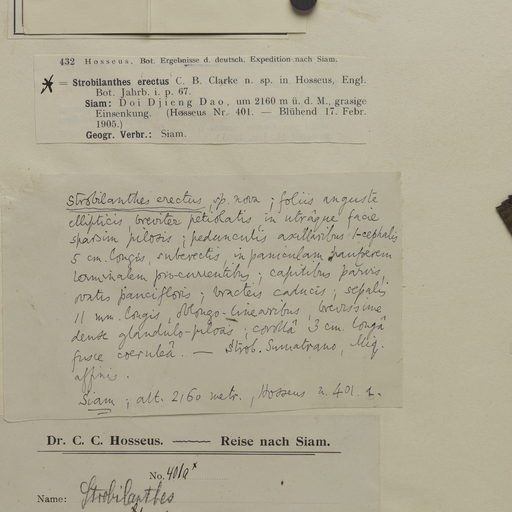 432 Hosseus, Bot. Ergebnisse d. deutsch. Expedition nach Siam.
= Strobilanthes erectus C. B. Clarke n. sp. in Hosseus, Engl.
Bot. Jahrb. i. p. 67.
Siam: Doi Djieng Dao, um 2160 m ü. d. M., grasige
Einsenkung. (Hosseus Nr. 401. — Blühend 17. Febr.
1905.)
Geogr. Verbr.: Siam.
Strobilanthes erectus, sp. nova; foliis anguste
ellipticis breviter petiolatis in utrâque facie
sparsim pilosis; pedunculis axillaribus 1-cephalis
5 cm. longis, suberectis, in paniculam pauperem
terminalem procurrentibus; capitulis parvis,
ovatis paucifloris; bracteis caducis; sepalis
11 mm. longis, oblongo-linearibus, brevissime
dense glandulo-pilosis; corollâ 3 cm. longâ
fusce coeruleâ. — Strob. Sumatrano, Miq.
affinis.
Siam; alt. 2160 metr., Hosseus n. 401.
Dr. C. C. Hosseus. — Reise nach Siam.
No. 401a x
Name: Strobilanthes